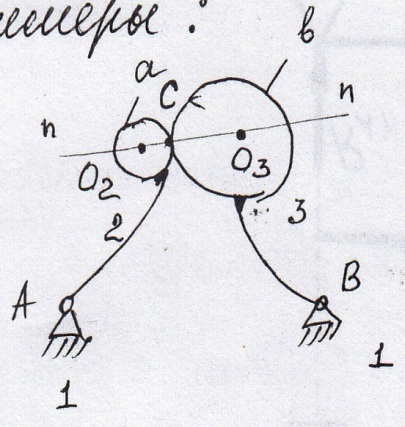 имеры :
a
C
b
n
n
O₂
O₃
2
3
A
B
1
1